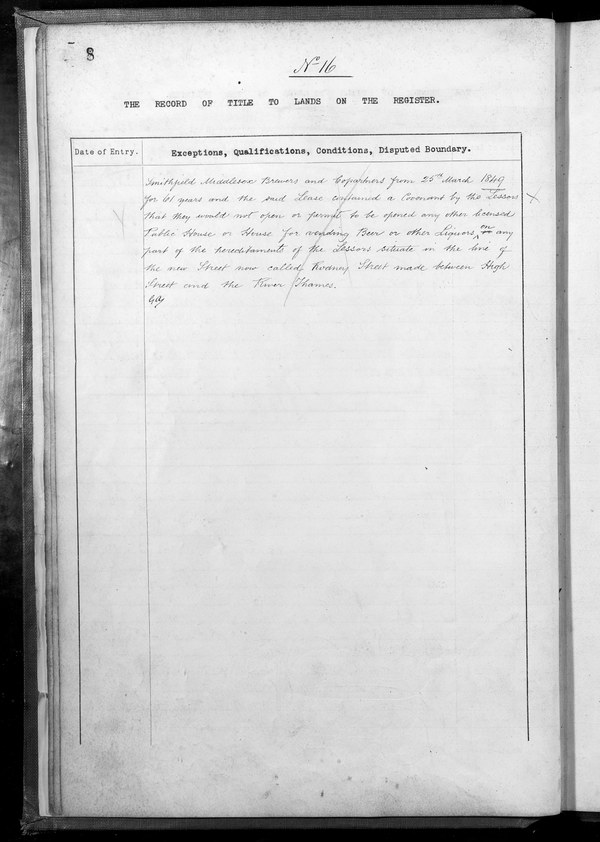 8
No 16
THE RECORD OF TITLE TO LANDS ON THE REGISTER.
Date of Entry. Exceptions, Qualifications, Conditions, Disputed Boundary.
Smithfield Middlesex Brewers and Copartners from 25th March 1849
for 61 years and the said Lease contained a Covenant by the Lessors
that they would not open or permit to be opened any other licensed
Public House or House for vending Beer or other Liquors on any
part of the hereditaments of the Lessors situate in the line of
the new Street now called Rodney Street made between High
Street and the River Thames.